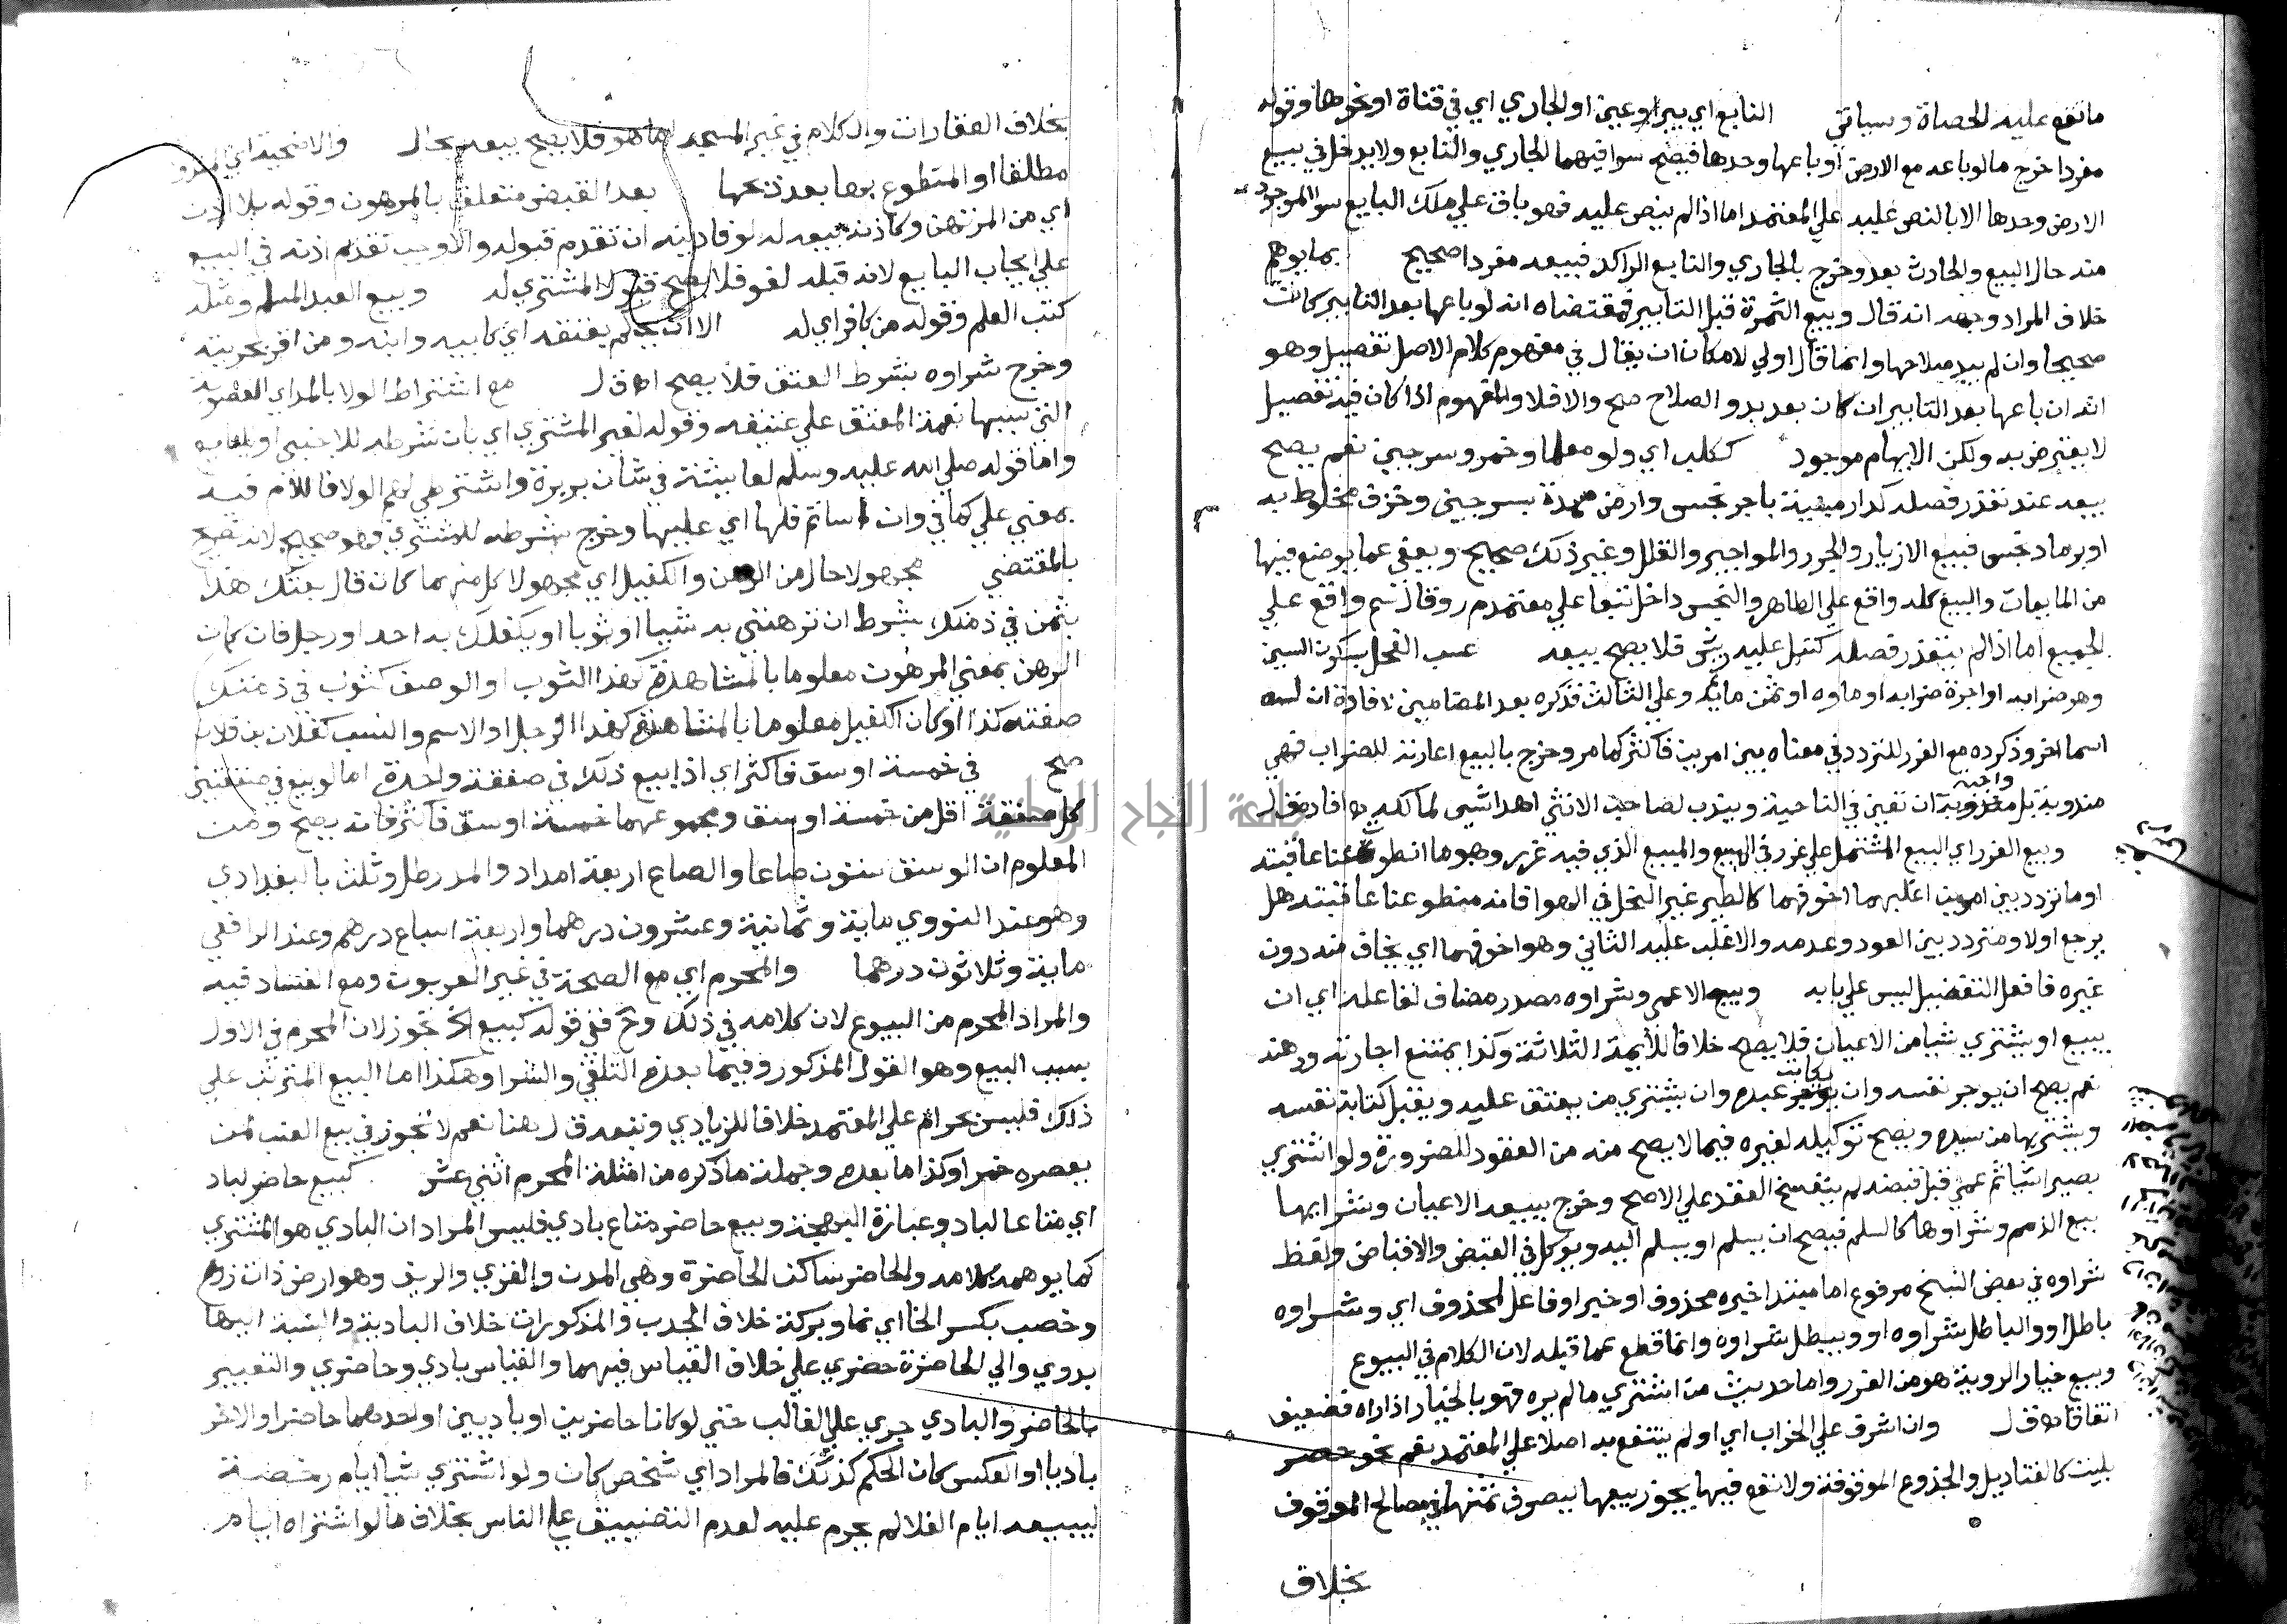 ما تقع عليه الحصاة وسياتي النابع اي بير او عين او الجاري اي في قناة او نحوها وقوله
مفردا خرج ما لو باعه مع الارض او باعها وحدها فيصح سوا فيهما الجاري والنابع ولا يدخل في بيع
الارض وحدها الا بالنص عليه علي المعتمد اما اذا لم ينص عليه فهو باق علي ملك البايع سوا الموجود
منه حال البيع والحادث بعد وخرج بالجاري والنابع الراكد فبيعه مفردا صحيح بما يوهم
خلاف المراد وجهه انه قال وبيع الثمرة قبل التابير فمقتضاه انه لو باعها بعد التابير كانت
صحيحا وان لم يبد صلاحها وانما قال اولي لامكان ان يقال في مفهوم كلام الاصل تفصيل وهو
انه ان باعها بعد التابير ان كان بعد بدو الصلاح صح والا فلا والمفهوم اذا كان فيه تفصيل
لا يعترض به ولكن الابهام موجود ككلب اي ولو معلما وخمر وسرجين نعم يصح
بيعه عند تعذر فصله كدار مبنية باجر نجس وارض مسمدة بسرجين وخزف مخلوط به
او برماد نجس فبيع الازيار والجرر والمواجير والقلل وغير ذلك صحيح ويعفي عما يوضع فيها
من المايعات والبيع كله واقع علي الطاهر والنجس داخل تبعا علي معتمد م ر وقال سم واقع علي
الجميع اما اذا لم يتعذر فصله كنبل عليه ريش فلا يصح بيعه عسب الفحل بسكون السين
وهو ضرابه او اجرة ضرابه او ماوه او ثمن مايه وعلي الثالث فذكره بعد المضامين لافادة ان له
اسما اخر وذكره مع الغرر للتردد في معناه بين امرين فاكثر كما مر وخرج بالبيع اعارته للضراب فهي
واجبة
مندوبة بل ان تعين في الناحية ويندب لصاحب الانثي اهدا شي لمالكه افاده ق ل
وبيع الغرر اي البيع المشتمل علي غرر في المبيع والمبيع الذي فيه غرر وهو ما انطوت عنا عاقبته
او ما تردد بين امرين اغلبهما اخوفهما كالطير غير النحل في الهوا فانه منطو عنا عاقبته هل
يرجع اولا ومتردد بين العود وعدمه والاغلب عليه الثاني وهو اخوفهما اي يخاف منه دون
غيره فافعل التفضيل ليس علي بابه وبيع الاعمي وشراوه مصدر مضاف لفاعله اي ان
يبيع او يشتري شيا من الاعيان فلا يصح خلافا للأيمة الثلاثة وكذا يمتنع اجارته ورهنه
يكاتب
نعم يصح ان يوجر نفسه وان عبده وان يشتري من يعتق عليه ويقبل كتابة نفسه
ويشتريها من سيده ويصح توكيله لغيره فيما لا يصح منه من العقود للضرورة ولو اشتري
بصير شيا ثم عمي قبل قبضه لم ينفسخ العقد علي الاصح وخرج ببيعه الاعيان وشرايها
بيع الذمم وشراوها كالسلم فيصح ان يسلم او يسلم اليه ويوكل في القبض والاقباض ولفظ
شراوه في بعض النسخ مرفوع اما مبتدا خبره محذوف او خبر او فاعل لمحذوف اي وشراوه
باطل او والباطل شراوه او ويبطل شراوه وانما قطع عما قبله لان الكلام في البيوع
وبيع خيار الروية هو من الغرر واما حديث من اشتري ما لم يره فهو بالخيار اذا راه فضعيف
اتفاقا ق ل وان اشرف علي الخراب اي او لم ينتفع به اصلا علي المعتمد نعم نحو حصر
بليت كالقناديل والجذوع الموقوفة ولا نفع فيها يجوز بيعها ليصرف ثمنها في مصالح الموقوف
بخلاف
بخلاف العقارات والكلام في غير المسجد اما هو فلا يصح بيعه بحال والاضحية اي المنذورة
مطلقا او المتطوع بها بعد ذبحها بعد القبض متعلق بالمرهون وقوله بلا اذن
اي من المرتهن وكاذنه بيعه له لو فا دينه ان تقدم قبوله والاوجب تقدم اذنه في البيع
علي ايجاب البايع لانه قبله لغو فلا يصح قبول المشتري له وبيع العبد المسلم ومثله
كتب العلم وقوله من كافر اي له الا ان يحكم بعتقه اي كابيه وابنه ومن اقر بحريته
وخرج شراوه بشرط العتق فلا يصح ق ل مع اشتراط الولا بالمد اي العصوبة
التي سببها نعمة المعتق علي عتيقه وقوله لغير المشتري اي بان شرطه للاجنبي او للبايع
واما قوله صلي الله عليه وسلم لعايشة في شان بريرة واشترطي لهم الولا فاللام فيه
بمعني علي كما في وان اساتم فلها اي عليها وخرج شرطه للمشتري فهو صحيح لانه تصريح
بالمقتضي مجهولا حال من الرهن والكفيل اي مجهولا كل منهما كان قال بعتك هذا
بثمن في ذمتك بشرط ان ترهنني به شيا او ثوبا او يكفلك به احد او رجل فان كان
الرهن بمعني المرهون معلوما بالمشاهدة كهذا الثوب او الوصف كثوب في ذمتك
صفته كذا او كان الكفيل معلوما بالمشاهدة كهذا الرجل او الاسم والنسب كفلان بن فلان
صح في خمسة اوسق فاكثر اي اذا بيع ذلك في صفقة واحدة اما لو بيع في صفقتين
كل صفقة اقل من خمسة اوسق ومجموعهما خمسة اوسق فاكثر فانه يصح ومن
المعلوم ان الوسق ستون صاعا والصاع اربعة امداد والمد رطل وثلث بالبغدادي
وهو عند النووي ماية وثمانية وعشرون درهما واربعة اسباع درهم وعند الرافعي
ماية وثلاثون درهما والمحرم اي مع الصحة في غير العربون ومع الفساد فيه
والمراد المحرم من البيوع لان كلامه في ذلك وح ففي قوله كبيع تجوز لان المحرم في الاول
بسبب البيع وهو القول المذكور وفيما بعده التلقي والشرا وهكذا اما البيع المترتب علي
ذلك فليس بحرام علي المعتمد خلافا للزيادي وتبعه ق ل هنا نعم لا تجوز في بيع العنب لمن
يعصره خمرا وكذا ما بعده وجملة ما ذكره من امثلة المحرم اثني عشر كبيع حاضر لباد
اي متاعا لباد وعبارة البهجة وبيع حاضر متاع بادي فليس المراد ان البادي هو المشتري
كما يوهمه كلامه والحاضر ساكن الحاضرة وهي المدن والقري والريف وهو ارض ذات زرع
وخصب بكسر الخا اي نما وبركة خلاف الجدب والمذكورات خلاف البادية والنسبة اليها
بدوي والي الحاضرة حضري علي خلاف القياس فيهما والقياس بادي وحاضري والتعبير
بالحاضر والبادي جري علي الغالب حتي لو كانا حاضرين او باديين او احدهما حاضرا والاخر
باديا او العكس كان الحكم كذلك فالمراد اي شخص كان ولو اشتري شيا ايام رخصه
ليبيعه ايام الغلا لم يحرم عليه لعدم التضييق علي الناس بخلاف ما لو اشتراه ايام
جامعة النجاح الوطنية